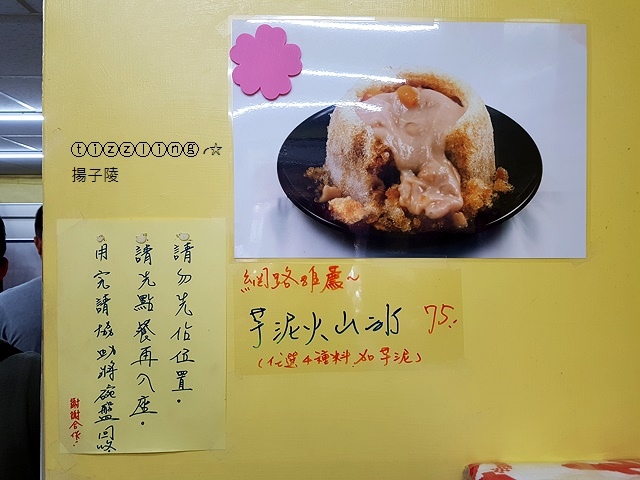 ⓣⓘⓩⓩⓛⓘⓝⓖ╭☆
揚子陵
網路推薦~
芋泥火山冰 75.
(任選4種料.加芋泥)
請勿先佔位置。
請先點餐再入座。
用完請協助將碗盤回收
謝謝合作!